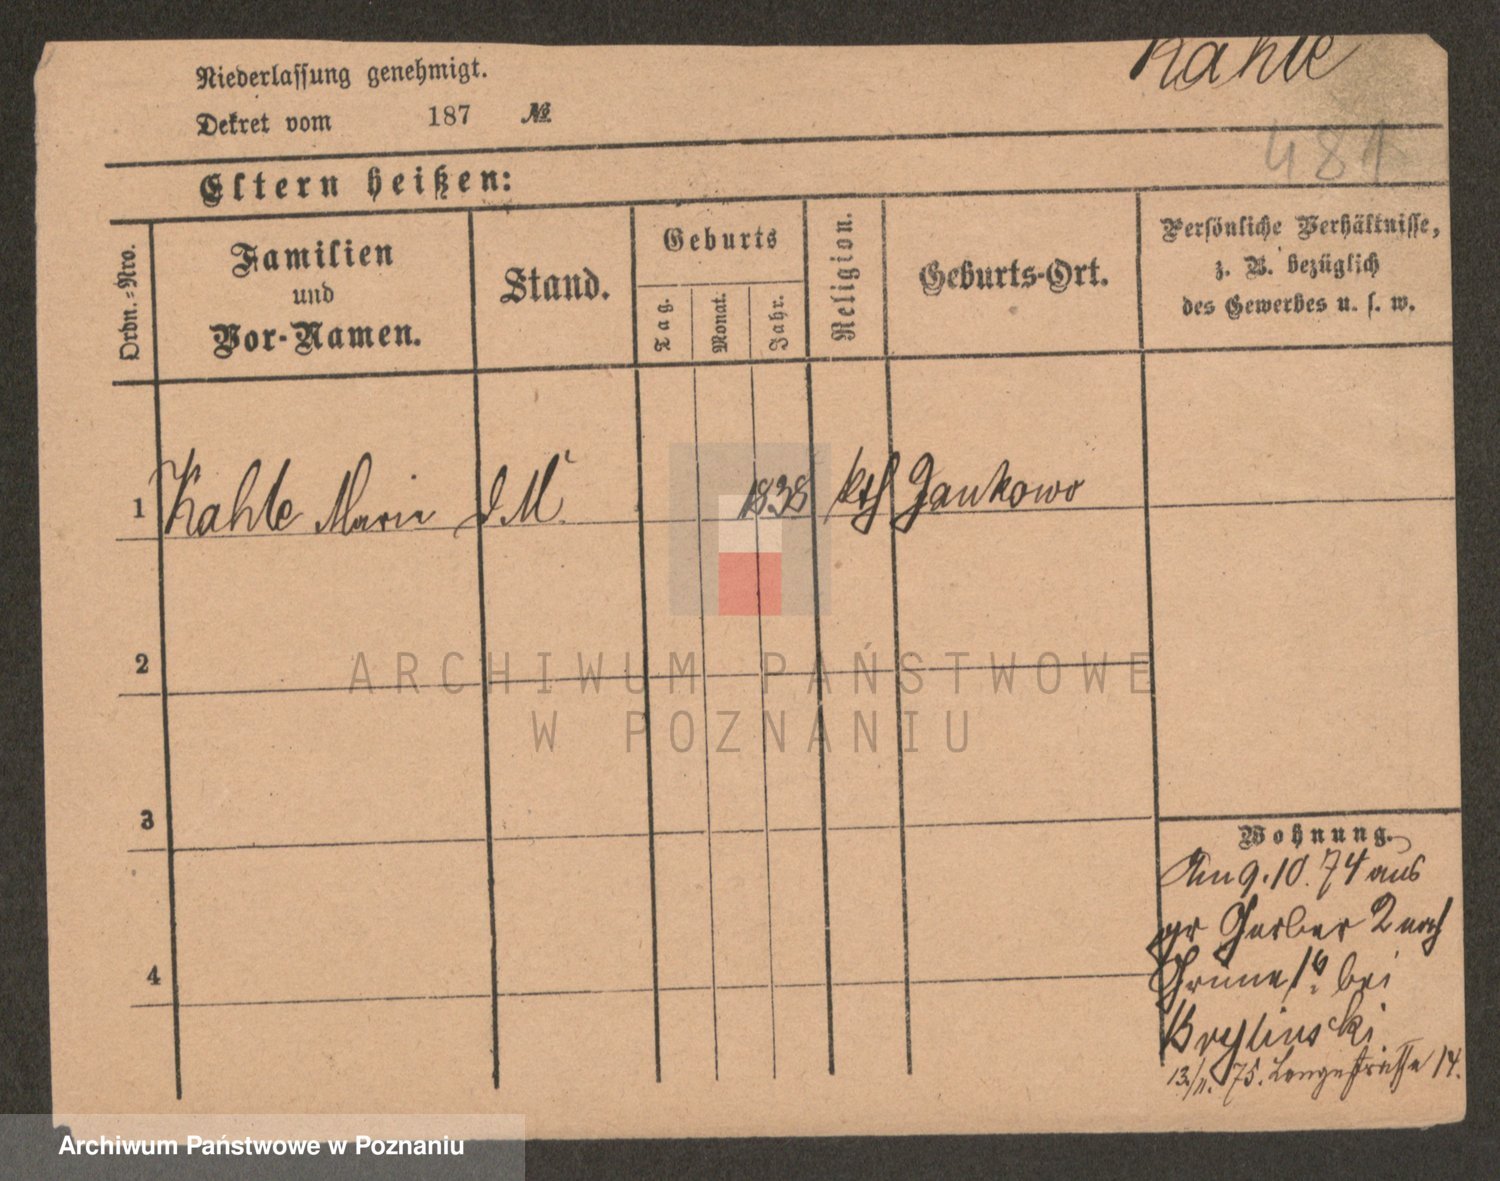 Kahle
Niederlassung genehmigt.
Dekret vom 187 №
481
Eltern heißen:
Ordn.-Nro.
Familien
und
Vor-Namen.
Stand.
Geburts
Tag.
Monat.
Jahr.
Religion.
Geburts-Ort.
Persönliche Verhältnisse,
z. B. bezüglich
des Gewerbes u. s. w.
1 Kahle Marie d M. 1838 kth Jankowo
2
ARCHIWUM PAŃSTWOWE
W POZNANIU
3
4
Wohnung.
Am 9.10.74 aus
gr Gerber 2 nach
Grüne 1 bei
13/11. 75. Langestraße 14.
Archiwum Państwowe w Poznaniu